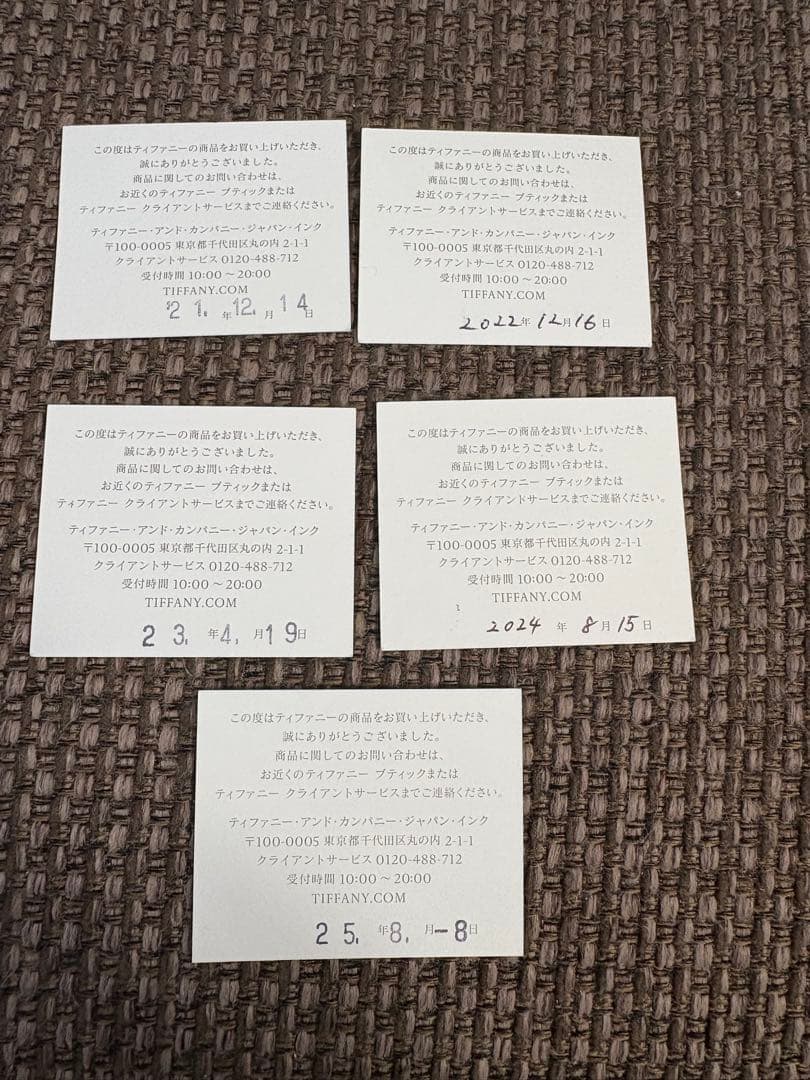 この度はティファニーの商品をお買い上げいただき、
誠にありがとうございました。
商品に関してのお問い合わせは、
お近くのティファニー ブティックまたは
ティファニー クライアントサービスまでご連絡ください。
ティファニー・アンド・カンパニー・ジャパン・インク
〒100-0005 東京都千代田区丸の内 2-1-1
クライアントサービス 0120-488-712
受付時間 10:00 ～ 20:00
TIFFANY.COM
'21.年12.月14日
この度はティファニーの商品をお買い上げいただき、
誠にありがとうございました。
商品に関してのお問い合わせは、
お近くのティファニー ブティックまたは
ティファニー クライアントサービスまでご連絡ください。
ティファニー・アンド・カンパニー・ジャパン・インク
〒100-0005 東京都千代田区丸の内 2-1-1
クライアントサービス 0120-488-712
受付時間 10:00 ～ 20:00
TIFFANY.COM
2022年12月16日
この度はティファニーの商品をお買い上げいただき、
誠にありがとうございました。
商品に関してのお問い合わせは、
お近くのティファニー ブティックまたは
ティファニー クライアントサービスまでご連絡ください。
ティファニー・アンド・カンパニー・ジャパン・インク
〒100-0005 東京都千代田区丸の内 2-1-1
クライアントサービス 0120-488-712
受付時間 10:00 ～ 20:00
TIFFANY.COM
23.年4.月19日
この度はティファニーの商品をお買い上げいただき、
誠にありがとうございました。
商品に関してのお問い合わせは、
お近くのティファニー ブティックまたは
ティファニー クライアントサービスまでご連絡ください。
ティファニー・アンド・カンパニー・ジャパン・インク
〒100-0005 東京都千代田区丸の内 2-1-1
クライアントサービス 0120-488-712
受付時間 10:00 ～ 20:00
TIFFANY.COM
2024年8月15日
この度はティファニーの商品をお買い上げいただき、
誠にありがとうございました。
商品に関してのお問い合わせは、
お近くのティファニー ブティックまたは
ティファニー クライアントサービスまでご連絡ください。
ティファニー・アンド・カンパニー・ジャパン・インク
〒100-0005 東京都千代田区丸の内 2-1-1
クライアントサービス 0120-488-712
受付時間 10:00 ～ 20:00
TIFFANY.COM
25.年8.月-8日